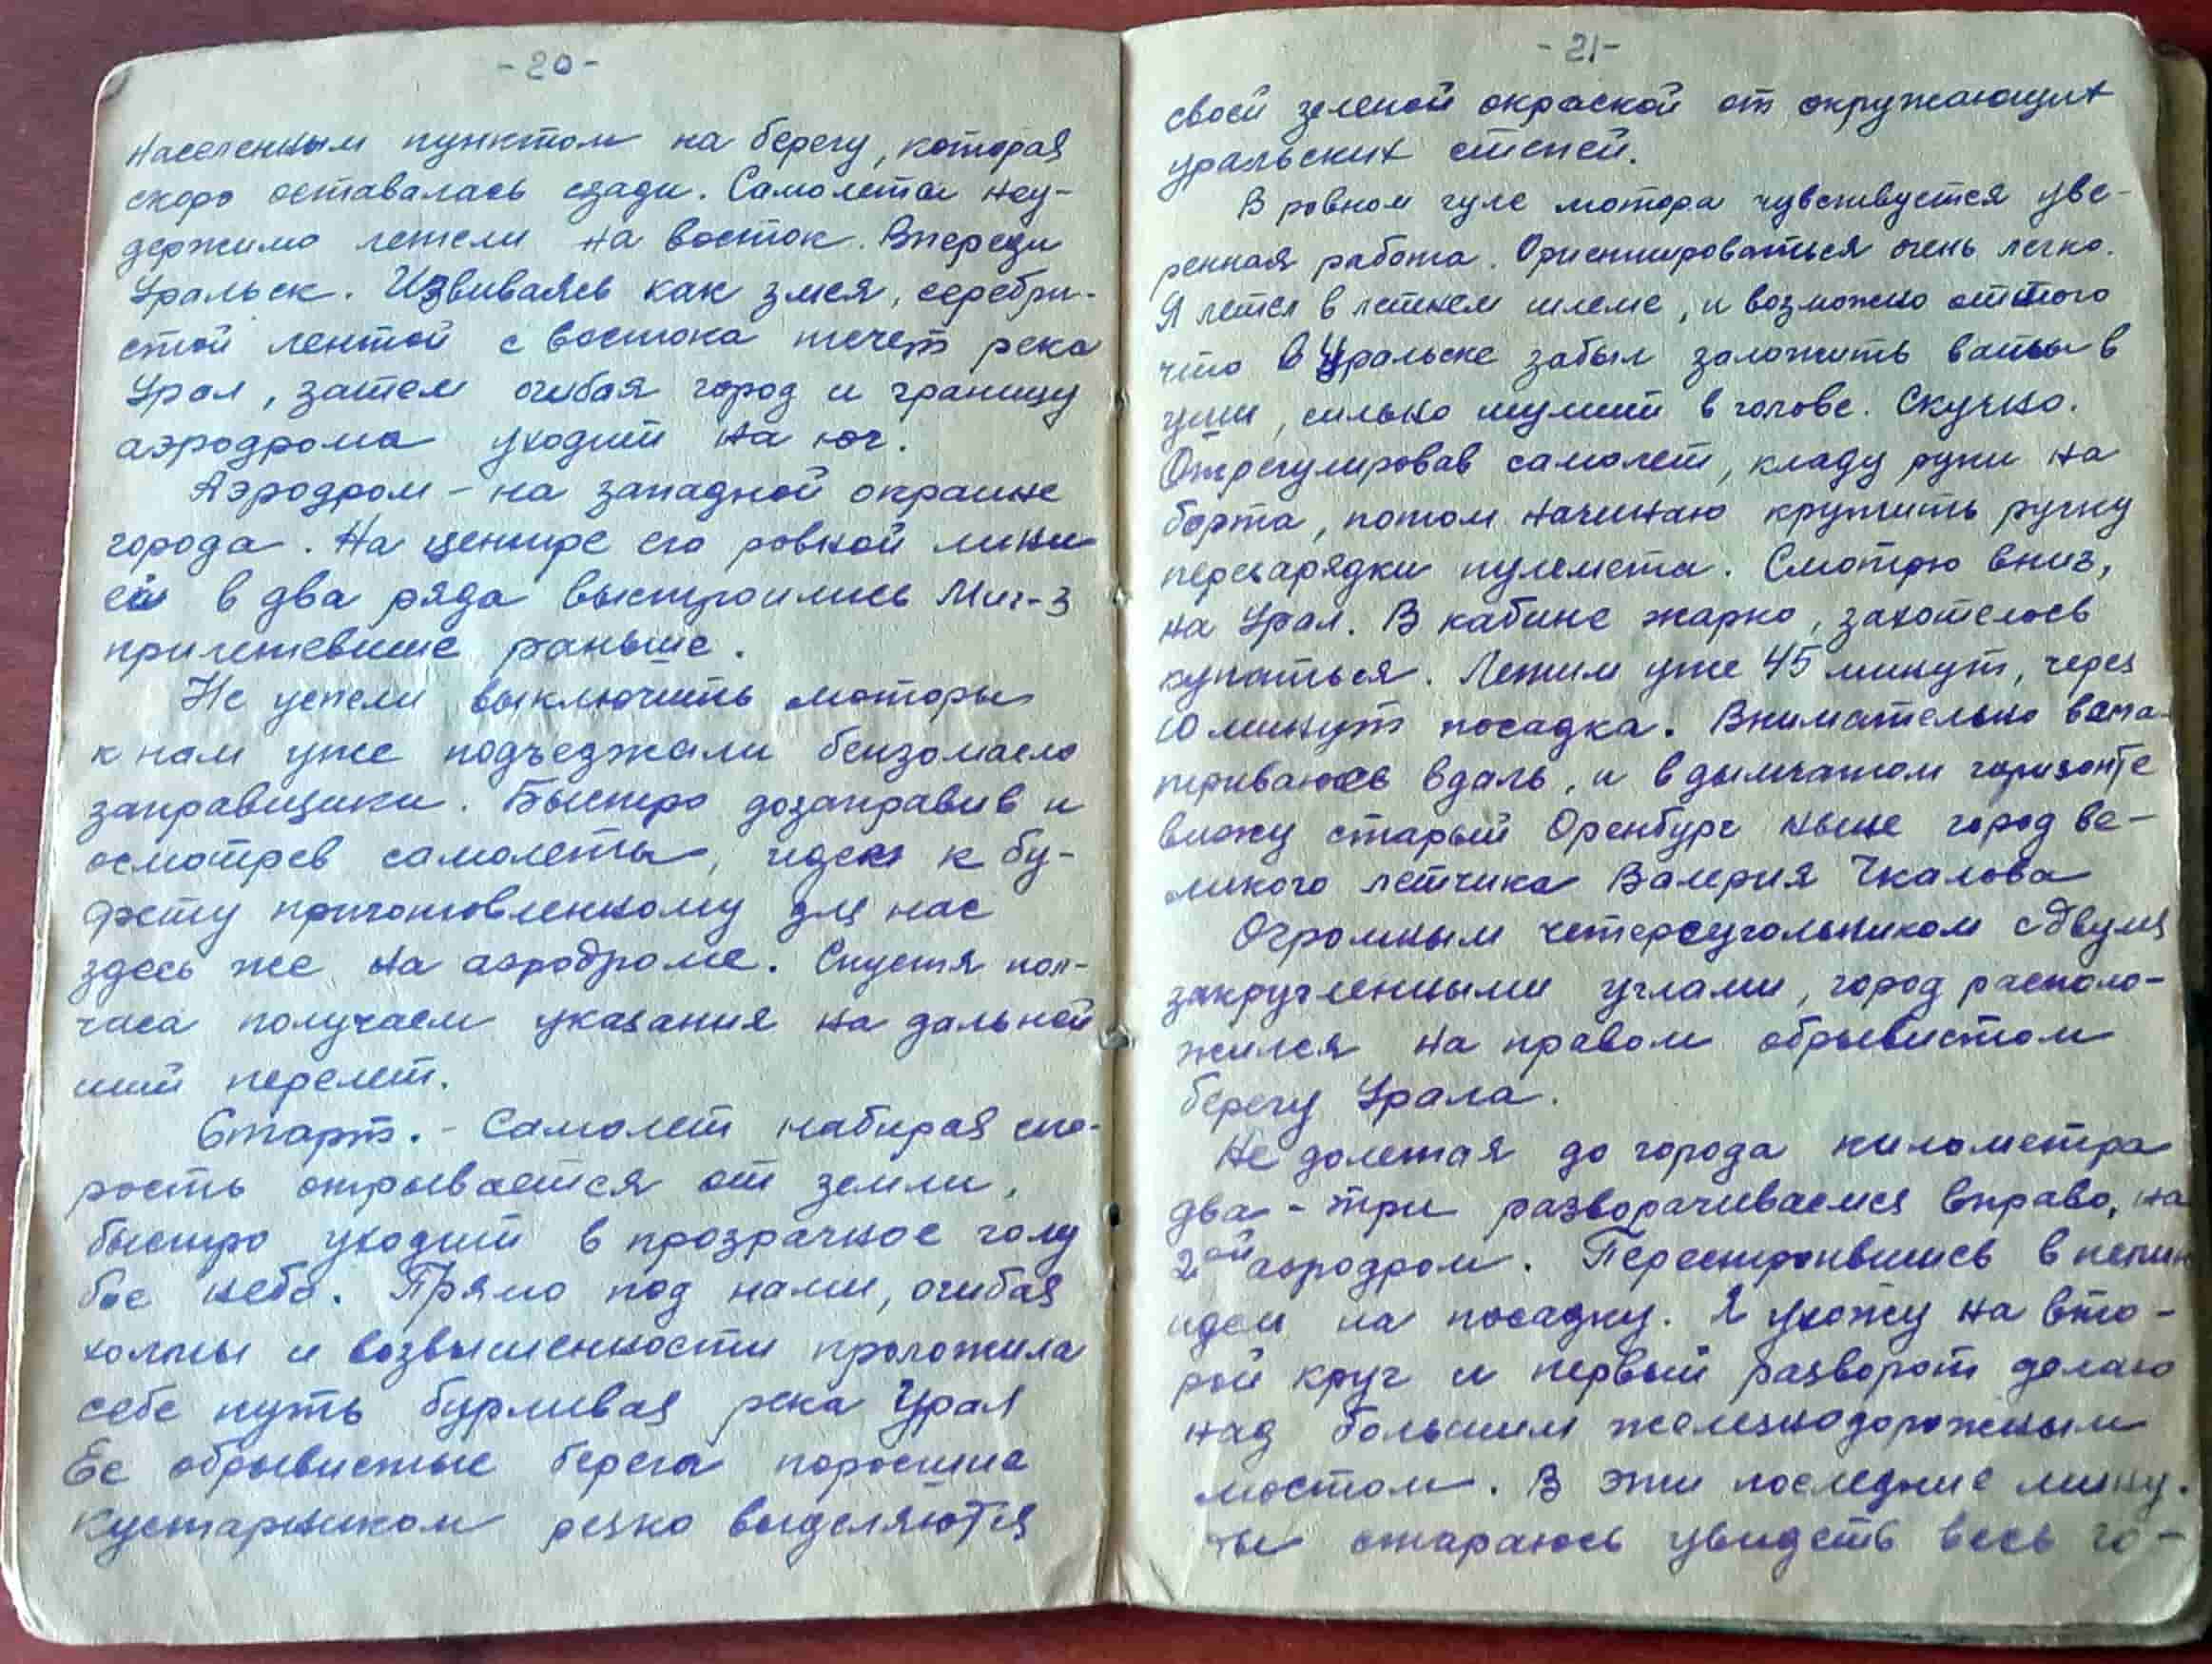 -20-
населенным пунктом на берегу, которая
скоро оставалась сзади. Самолеты неу-
держимо летели на восток. Впереди
Уральск. Извиваясь как змея, серебри-
стой лентой с востока течет река
Урал, затем огибая город и границу
аэродрома уходит на юг.
Аэродром - на западной окраине
города. На центре его ровной лини
ей в два ряда выстроились Миг-3
прилетевшие раньше.
Не успели выключить моторы
к нам уже подъезжали бензомасло
заправщики. Быстро дозаправив и
осмотрев самолеты, идем к бу-
фету приготовленному для нас
здесь же на аэродроме. Спустя пол-
часа получаем указания на дальней
ший перелет.
Старт. - Самолет набирая ско-
рость отрывается от земли,
быстро уходит в прозрачное голу
бое небо. Прямо под нами, огибая
холмы и возвышенности проложила
себе путь бурливая река Урал
Ее обрывистые берега поросшие
кустарником резко выделяются
-21-
своей зеленой окраской от окружающих
уральских степей.
В ровном гуле мотора чувствуется уве-
ренная работа. Ориентироваться очень легко.
Я летел в летнем шлеме, и возможно оттого
что в Уральске забыл заложить ваты в
уши, сильно шумит в голове. Скучно.
Отрегулировав самолет, кладу руки на
борта, потом начинаю крутить ручку
перезарядки пулемета. Смотрю вниз,
на Урал. В кабине жарко, захотелось
купаться. Летим уже 45 минут, через
10 минут посадка. Внимательно всма-
триваюсь вдаль, и в дымчатом горизонте
вижу старый Оренбург ныне город ве-
ликого летчика Валерия Чкалова
Огромным четерсугольником с двумя
закругленными углами, город располо-
жился на правом обрывистом
берегу Урала.
Не долетая до города километра
два - три разворачиваемся вправо, на
2ой аэродром. Перестроившись в
идем на посадку. Я ухожу на вто-
рой круг и первый разворот делаю
над большим железнодорожным
мостом. В эти последние мину-
ты стараюсь увидеть весь го-